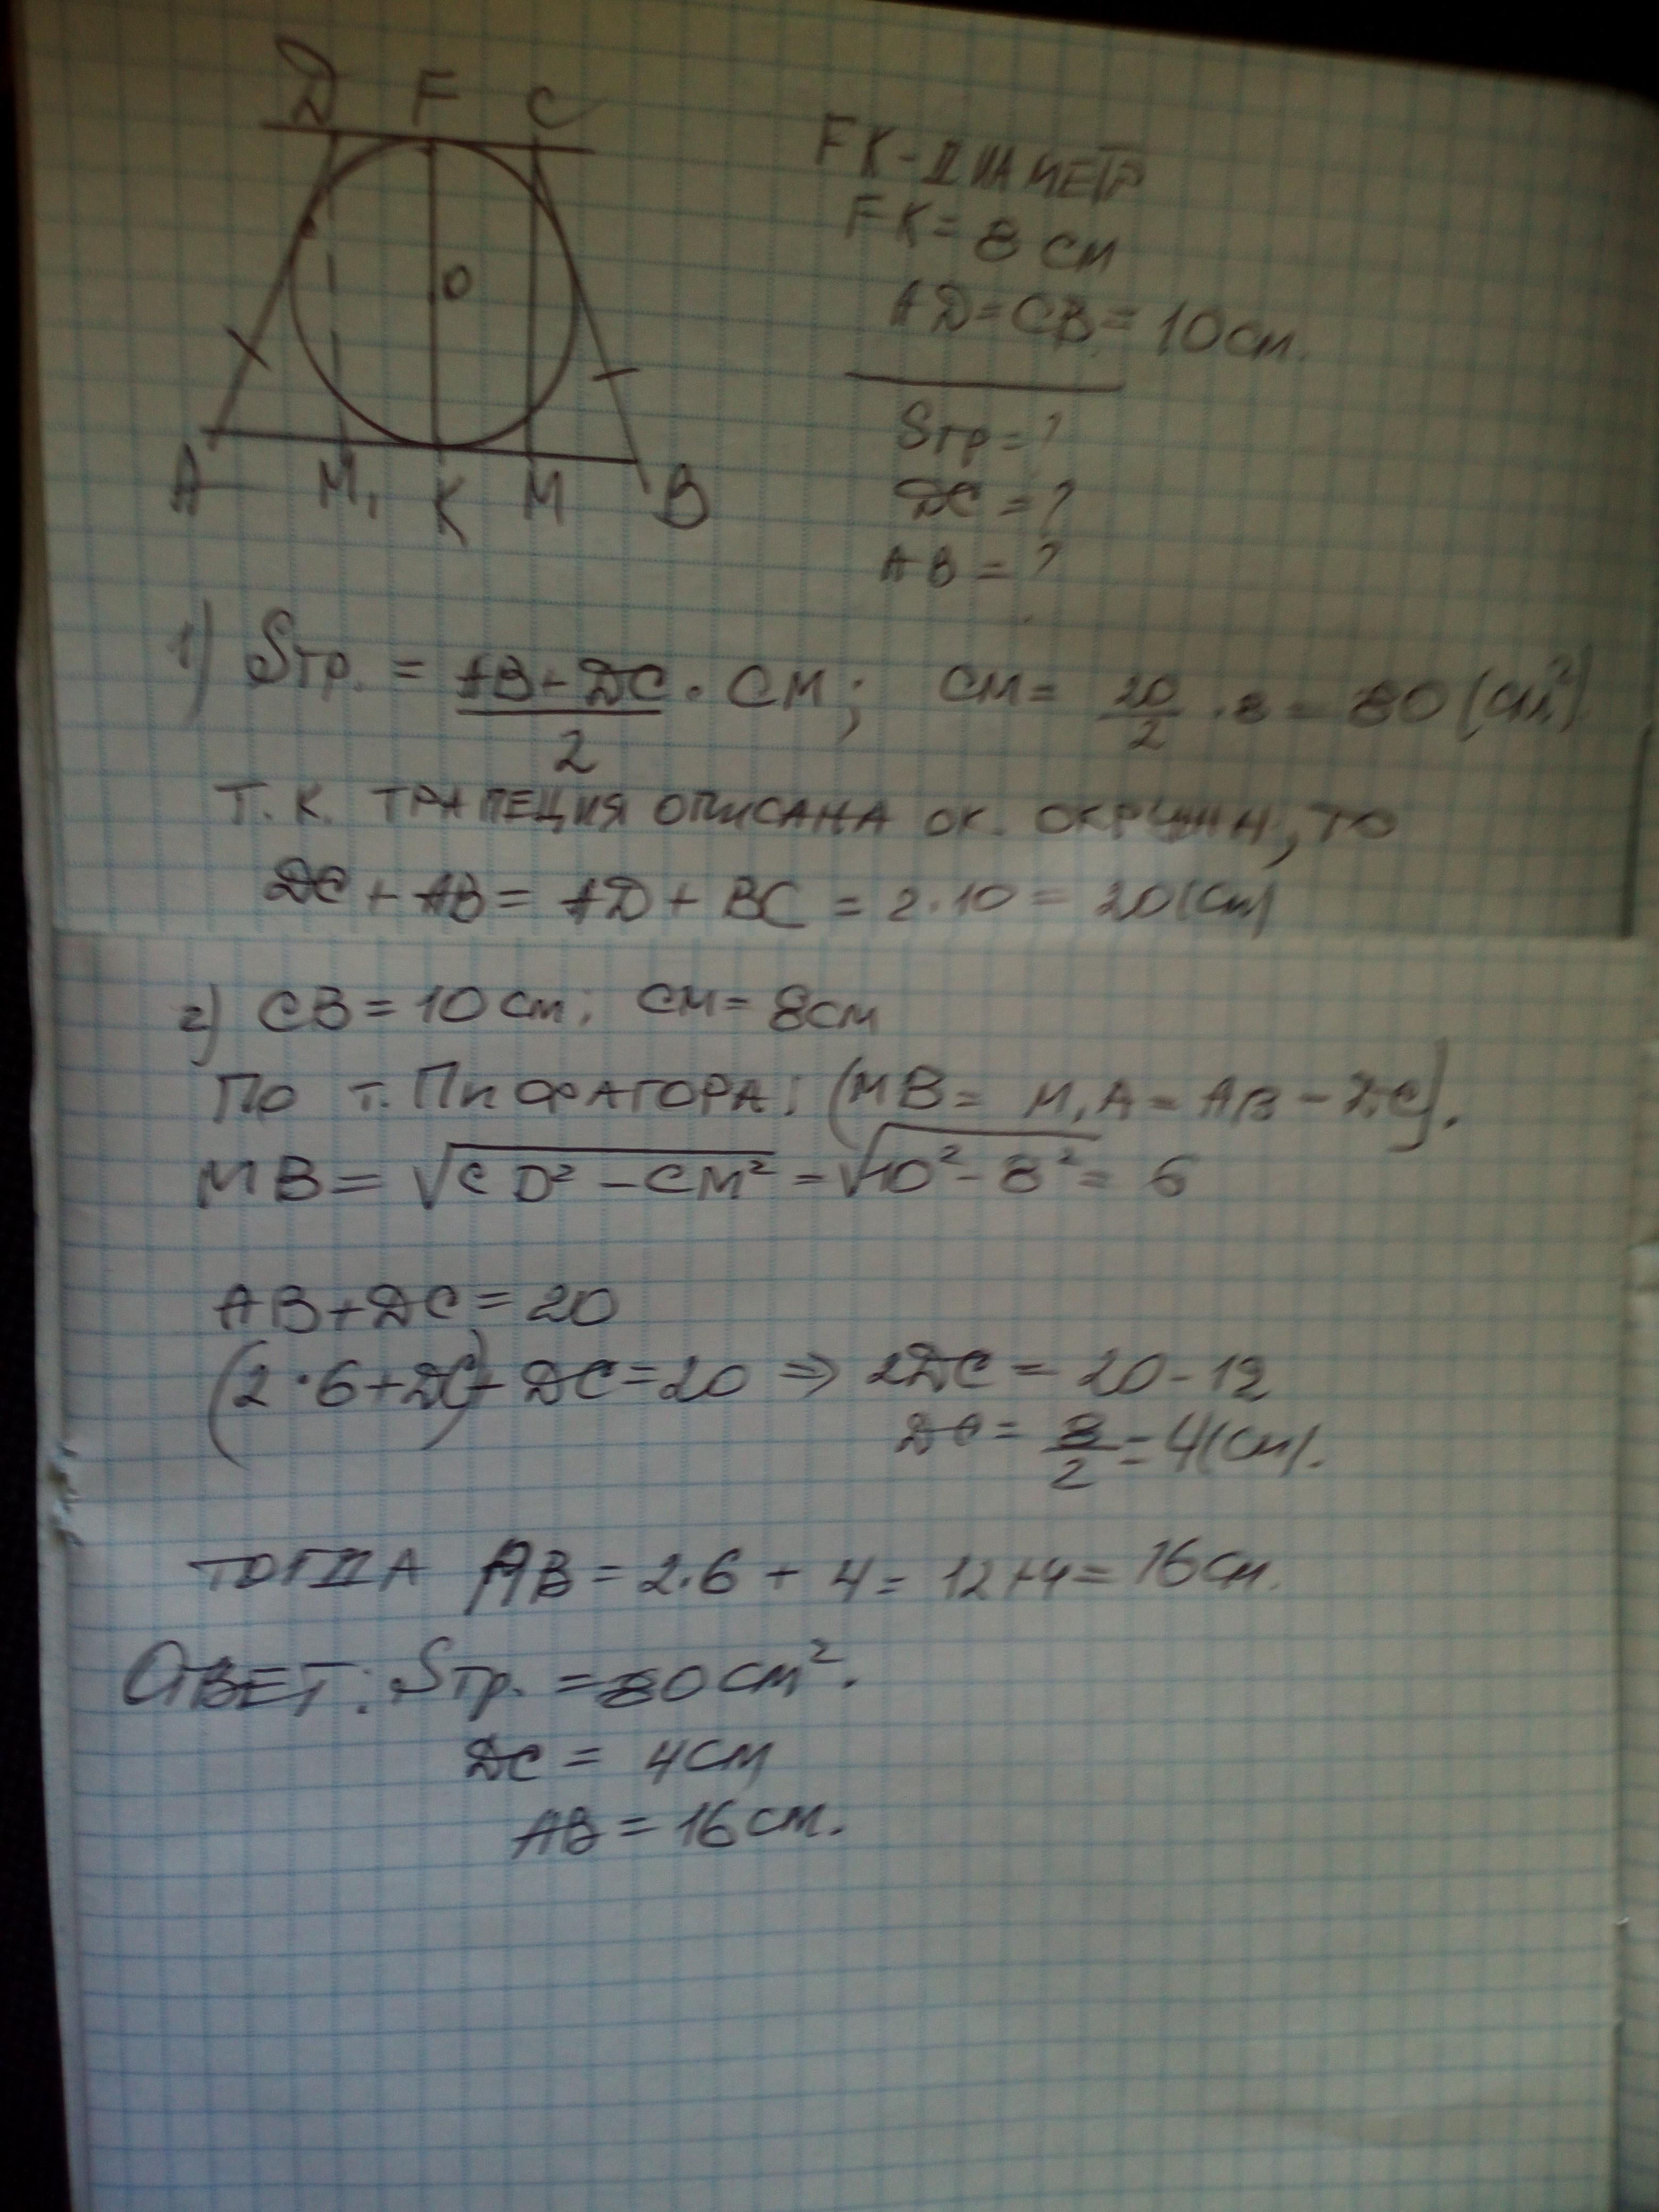 D F C
O
A M₁ K M B
FK-ДИАМЕТР
FK = 8 см
AD = CB = 10 см.
Sтр = ?
DC = ?
AB = ?
1) Sтр. = (AB + DC)/2 · CM; CM = 20/2 · 8 = 80 (см²)
Т.К. ТРАПЕЦИЯ ОПИСАНА ОК. ОКРУЖН, ТО
DC + AB = AD + BC = 2·10 = 20 (см)
2) CB = 10 см; CM = 8 см
ПО Т. ПИФАГОРА: (MB = M₁A = AB - DC).
MB = √(CD² - CM²) = √(10² - 8²) = 6
AB + DC = 20
(2·6 + DC) + DC = 20 ⇒ 2DC = 20 - 12
DC = 8/2 = 4 (см).
ТОГДА AB = 2·6 + 4 = 12 + 4 = 16 см.
ОТВЕТ: Sтр. = 80 см².
DC = 4 см
AB = 16 см.